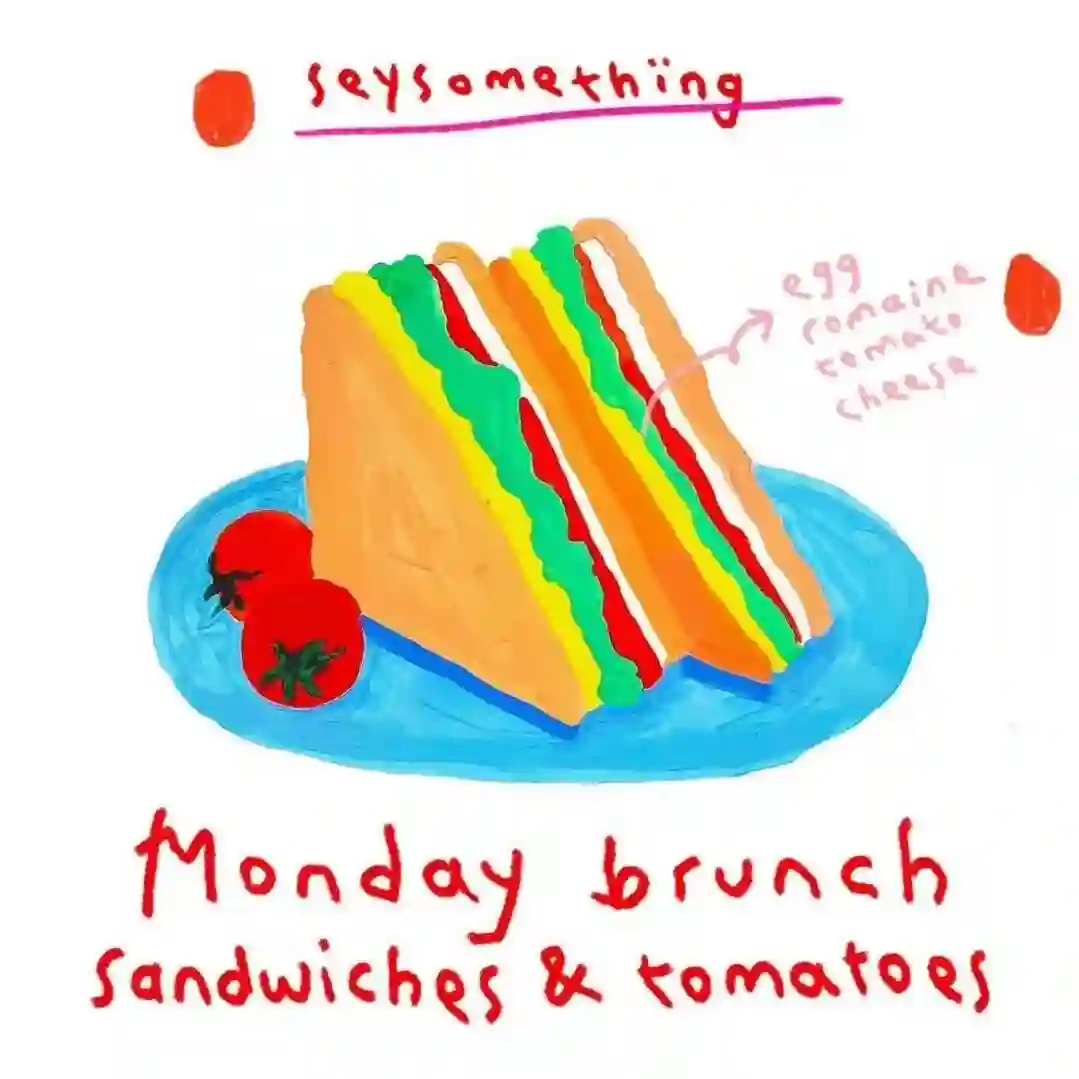 seysomethïng
egg
romaine
tomato
cheese
Monday brunch
sandwiches & tomatoes